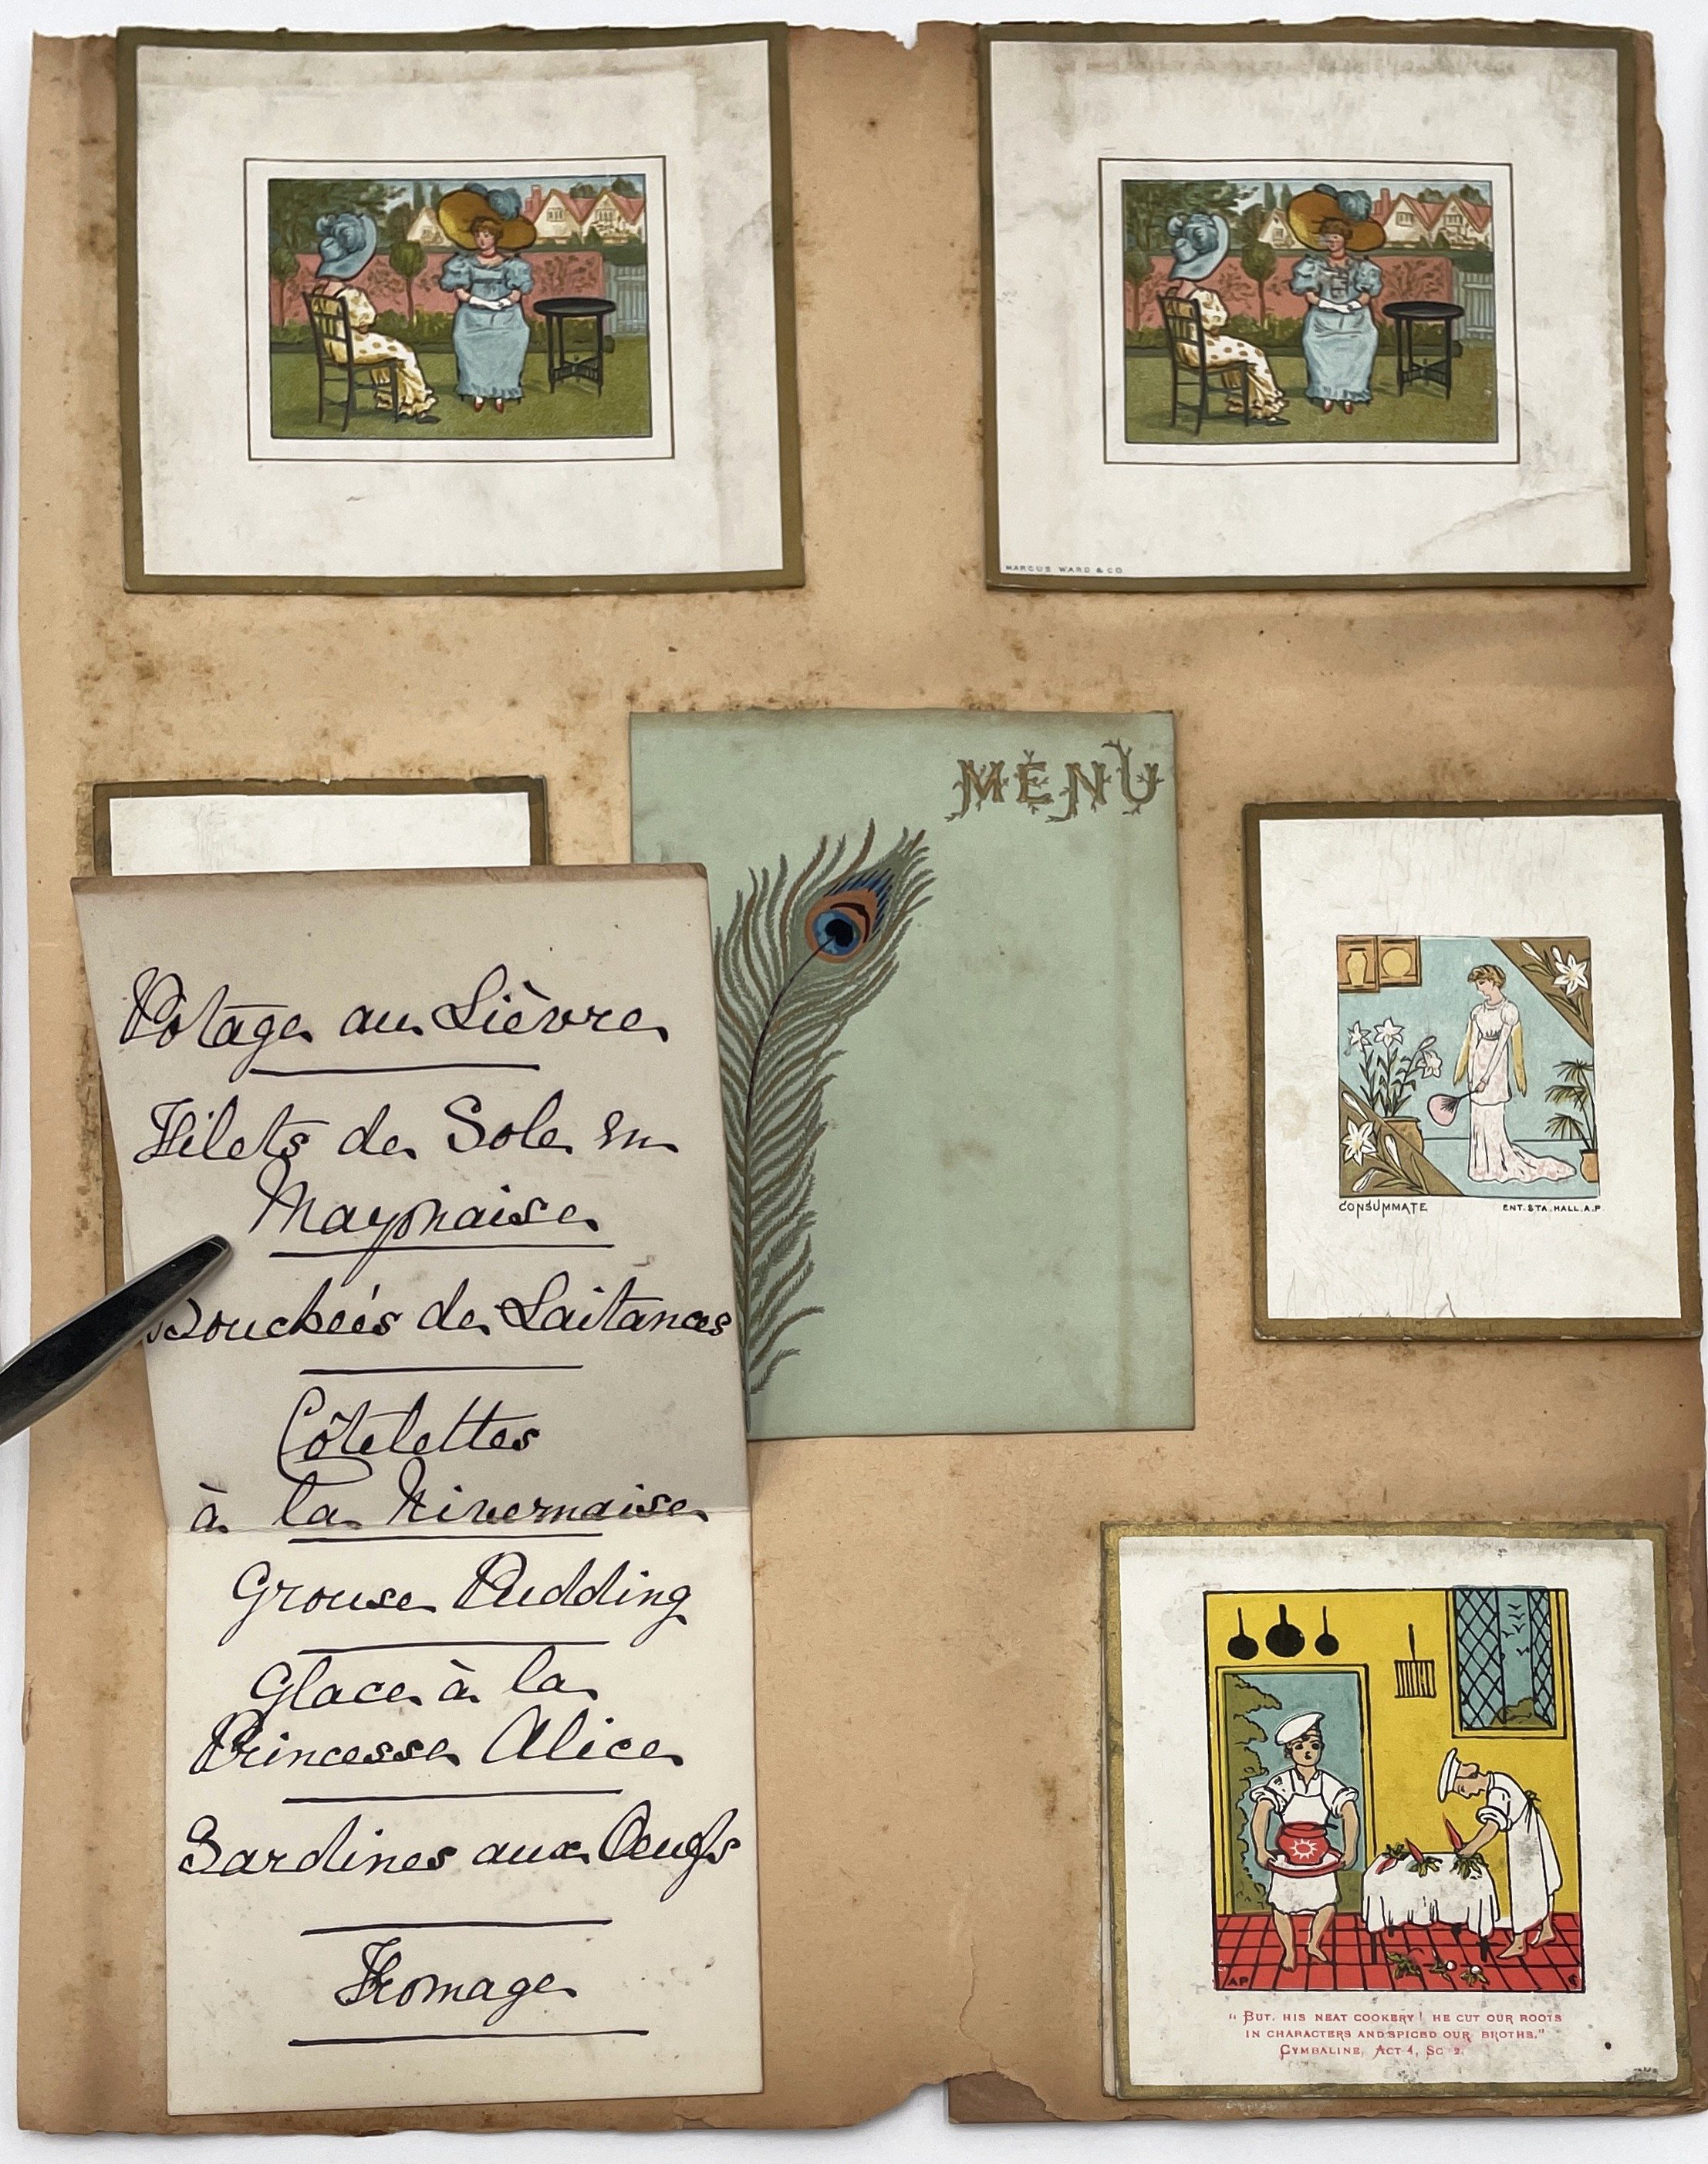 MARCUS WARD & CO
MENU
Potage au Lièvre
Filets de Sole en
Mayonaise
Bouchées de Laitances
Côtelettes
à la Nivernaise
Grouse Pudding
Glace à la
Princesse Alice
Sardines aux Oeufs
Fromage
CONSUMMATE
ENT. STA. HALL. A.P
AP
"BUT, HIS NEAT COOKERY! HE CUT OUR ROOTS
IN CHARACTERS AND SPICED OUR BROTHS."
CYMBALINE, ACT 4, SC 2.